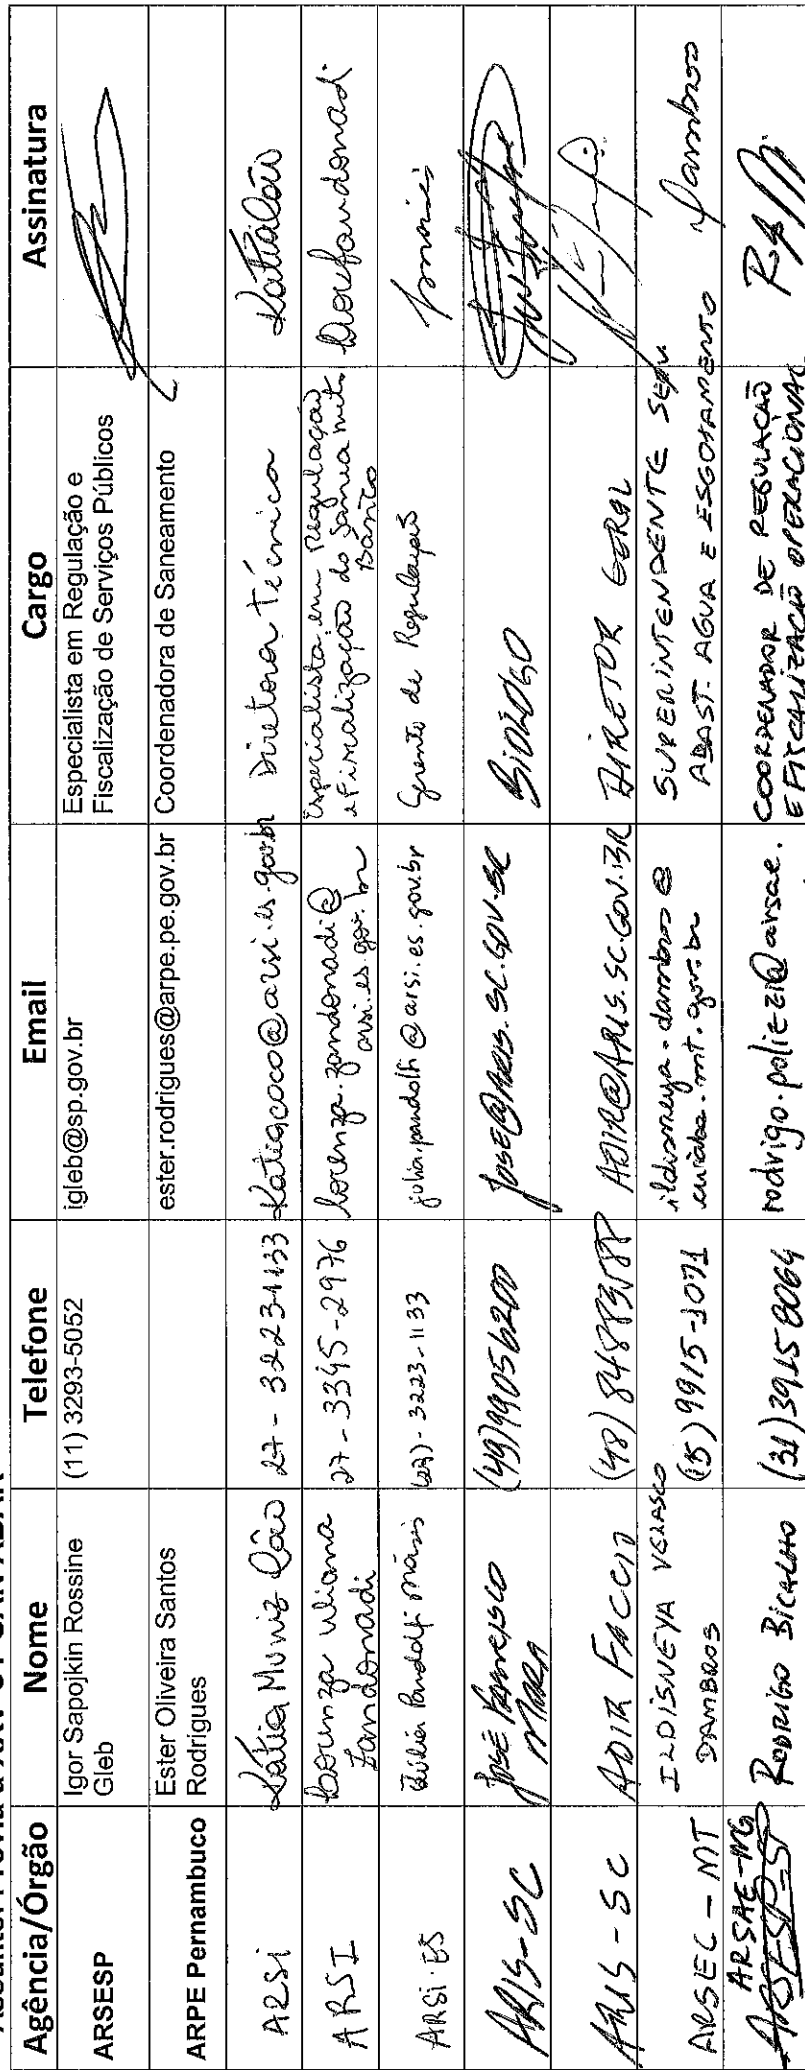 Agência/Órgão Nome Telefone Email Cargo Assinatura
ARSESP Igor Sapojkin Rossine Gleb (11) 3293-5052 igleb@sp.gov.br Especialista em Regulação e Fiscalização de Serviços Públicos
ARPE Pernambuco Ester Oliveira Santos Rodrigues ester.rodrigues@arpe.pe.gov.br Coordenadora de Saneamento
ARSI Kátia Muniz Côco 27-32231133 katiacoco@arsi.es.gov.br Diretora Técnica
ARSI Lorenza Uliana Zandonadi 27-3345-2976 lorenza.zandonadi@arsi.es.gov.br Especialista em Regulação e Fiscalização do Básico
ARSI-ES Pandolfi (27)-3223-1133 julia.pandolfi@arsi.es.gov.br Gerente de Regulação
ARIS-SC José Francisco (49)99056200 JOSE@ARIS.SC.GOV.BR BIÓLOGO
ARIS-SC ADIR FACCIO (48) ADIR@ARIS.SC.GOV.BR DIRETOR GERAL
ARSEC-MT ILDISNEYA VELASCO DAMBROS 9915-1071 ildisneya.dambros@cuiaba.mt.gov.br SUPERINTENDENTE ABAST. AGUA E ESGOTAMENTO Dambros
ARSAE-MG ARSESP-SP RODRIGO BICALHO (31)39158064 rodrigo.polizzi@arsae. COORDENADOR DE REGULAÇÃO E FISCALIZAÇÃO OPERACIONAL